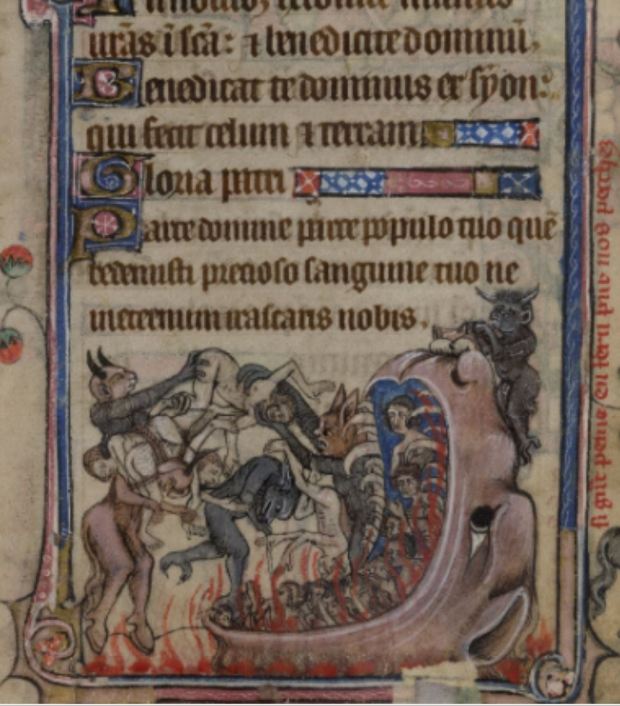 manus
uras ī scā: ⁊ benedicite dominū.
Benedicat te dominus ex syon:
qui fecit celum ⁊ terram
Gloria patri
Parce domine parce populo tuo quē
redemisti precioso sanguine tuo ne
ineternum irascaris nobis.
peine pur nos pechez